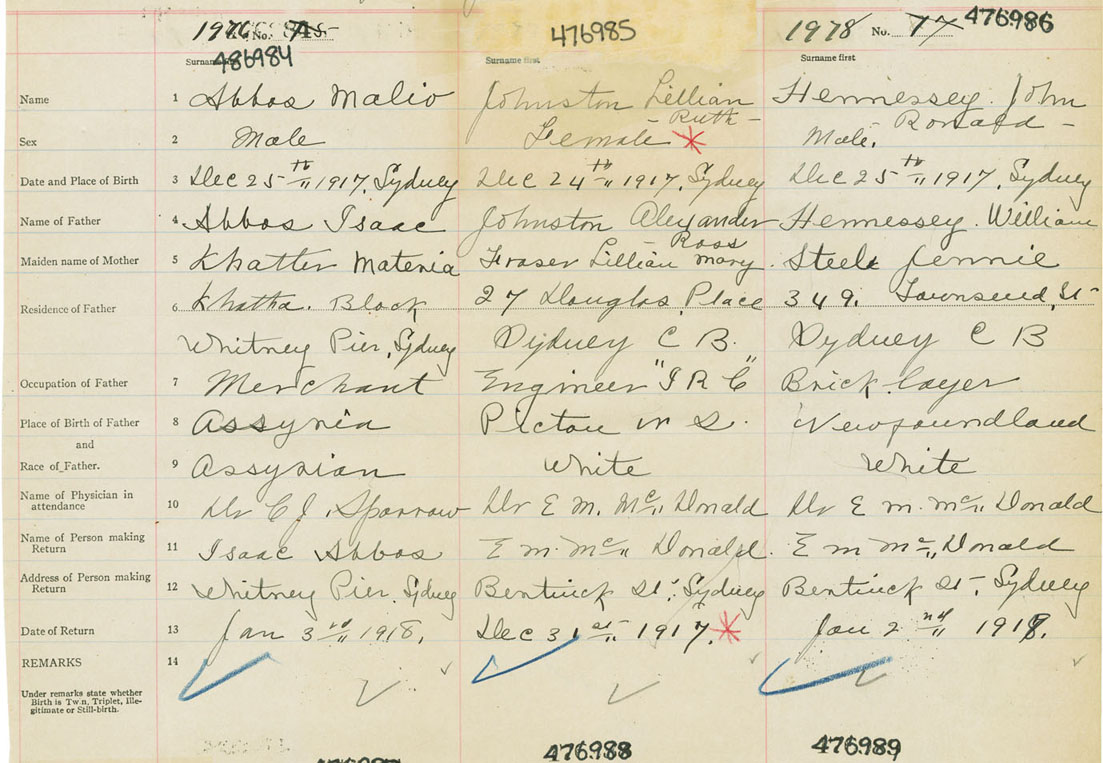 1976 No.
476985
1978 No. 77 476986
486984
Surname first
Surname first
Surname first
Name 1 Abbas Malio Johnston Lillian Hennessey. John
Ruth - Ronald -
Sex 2 Male Female * Male.
Date and Place of Birth 3 Dec 25th 1917, Sydney Dec 24th 1917, Sydney Dec 25th 1917, Sydney
Name of Father 4 Abbas Isaac Johnston Alexander Hennessey. William
Ross
Maiden name of Mother 5 Khatter Materia Fraser Lillian Mary Steele Jennie
Residence of Father 6 Khatha. Block 27 Douglas Place 349. Townsend, St-
Whitney Pier, Sydney Sydney C B. Sydney C B
Occupation of Father 7 Merchant Engineer "I R C" Brick layer
Place of Birth of Father 8 Assyria Pictou N S. Newfoundland
and
Race of Father. 9 Assyrian White White
Name of Physician in
attendance 10 Dr C J. Sparrow Dr E M. McDonald Dr E M. McDonald
Name of Person making
Return 11 Isaac Abbas E M. McDonald. E M McDonald
Address of Person making
Return 12 Whitney Pier. Sydney Bentinck St, Sydney Bentinck St, Sydney
Date of Return 13 Jan 3rd 1918. Dec 31st 1917. * Jan 2nd 1918.
REMARKS 14
Under remarks state whether
Birth is Twin, Triplet, Ille-
gitimate or Still-birth.
476988
476989